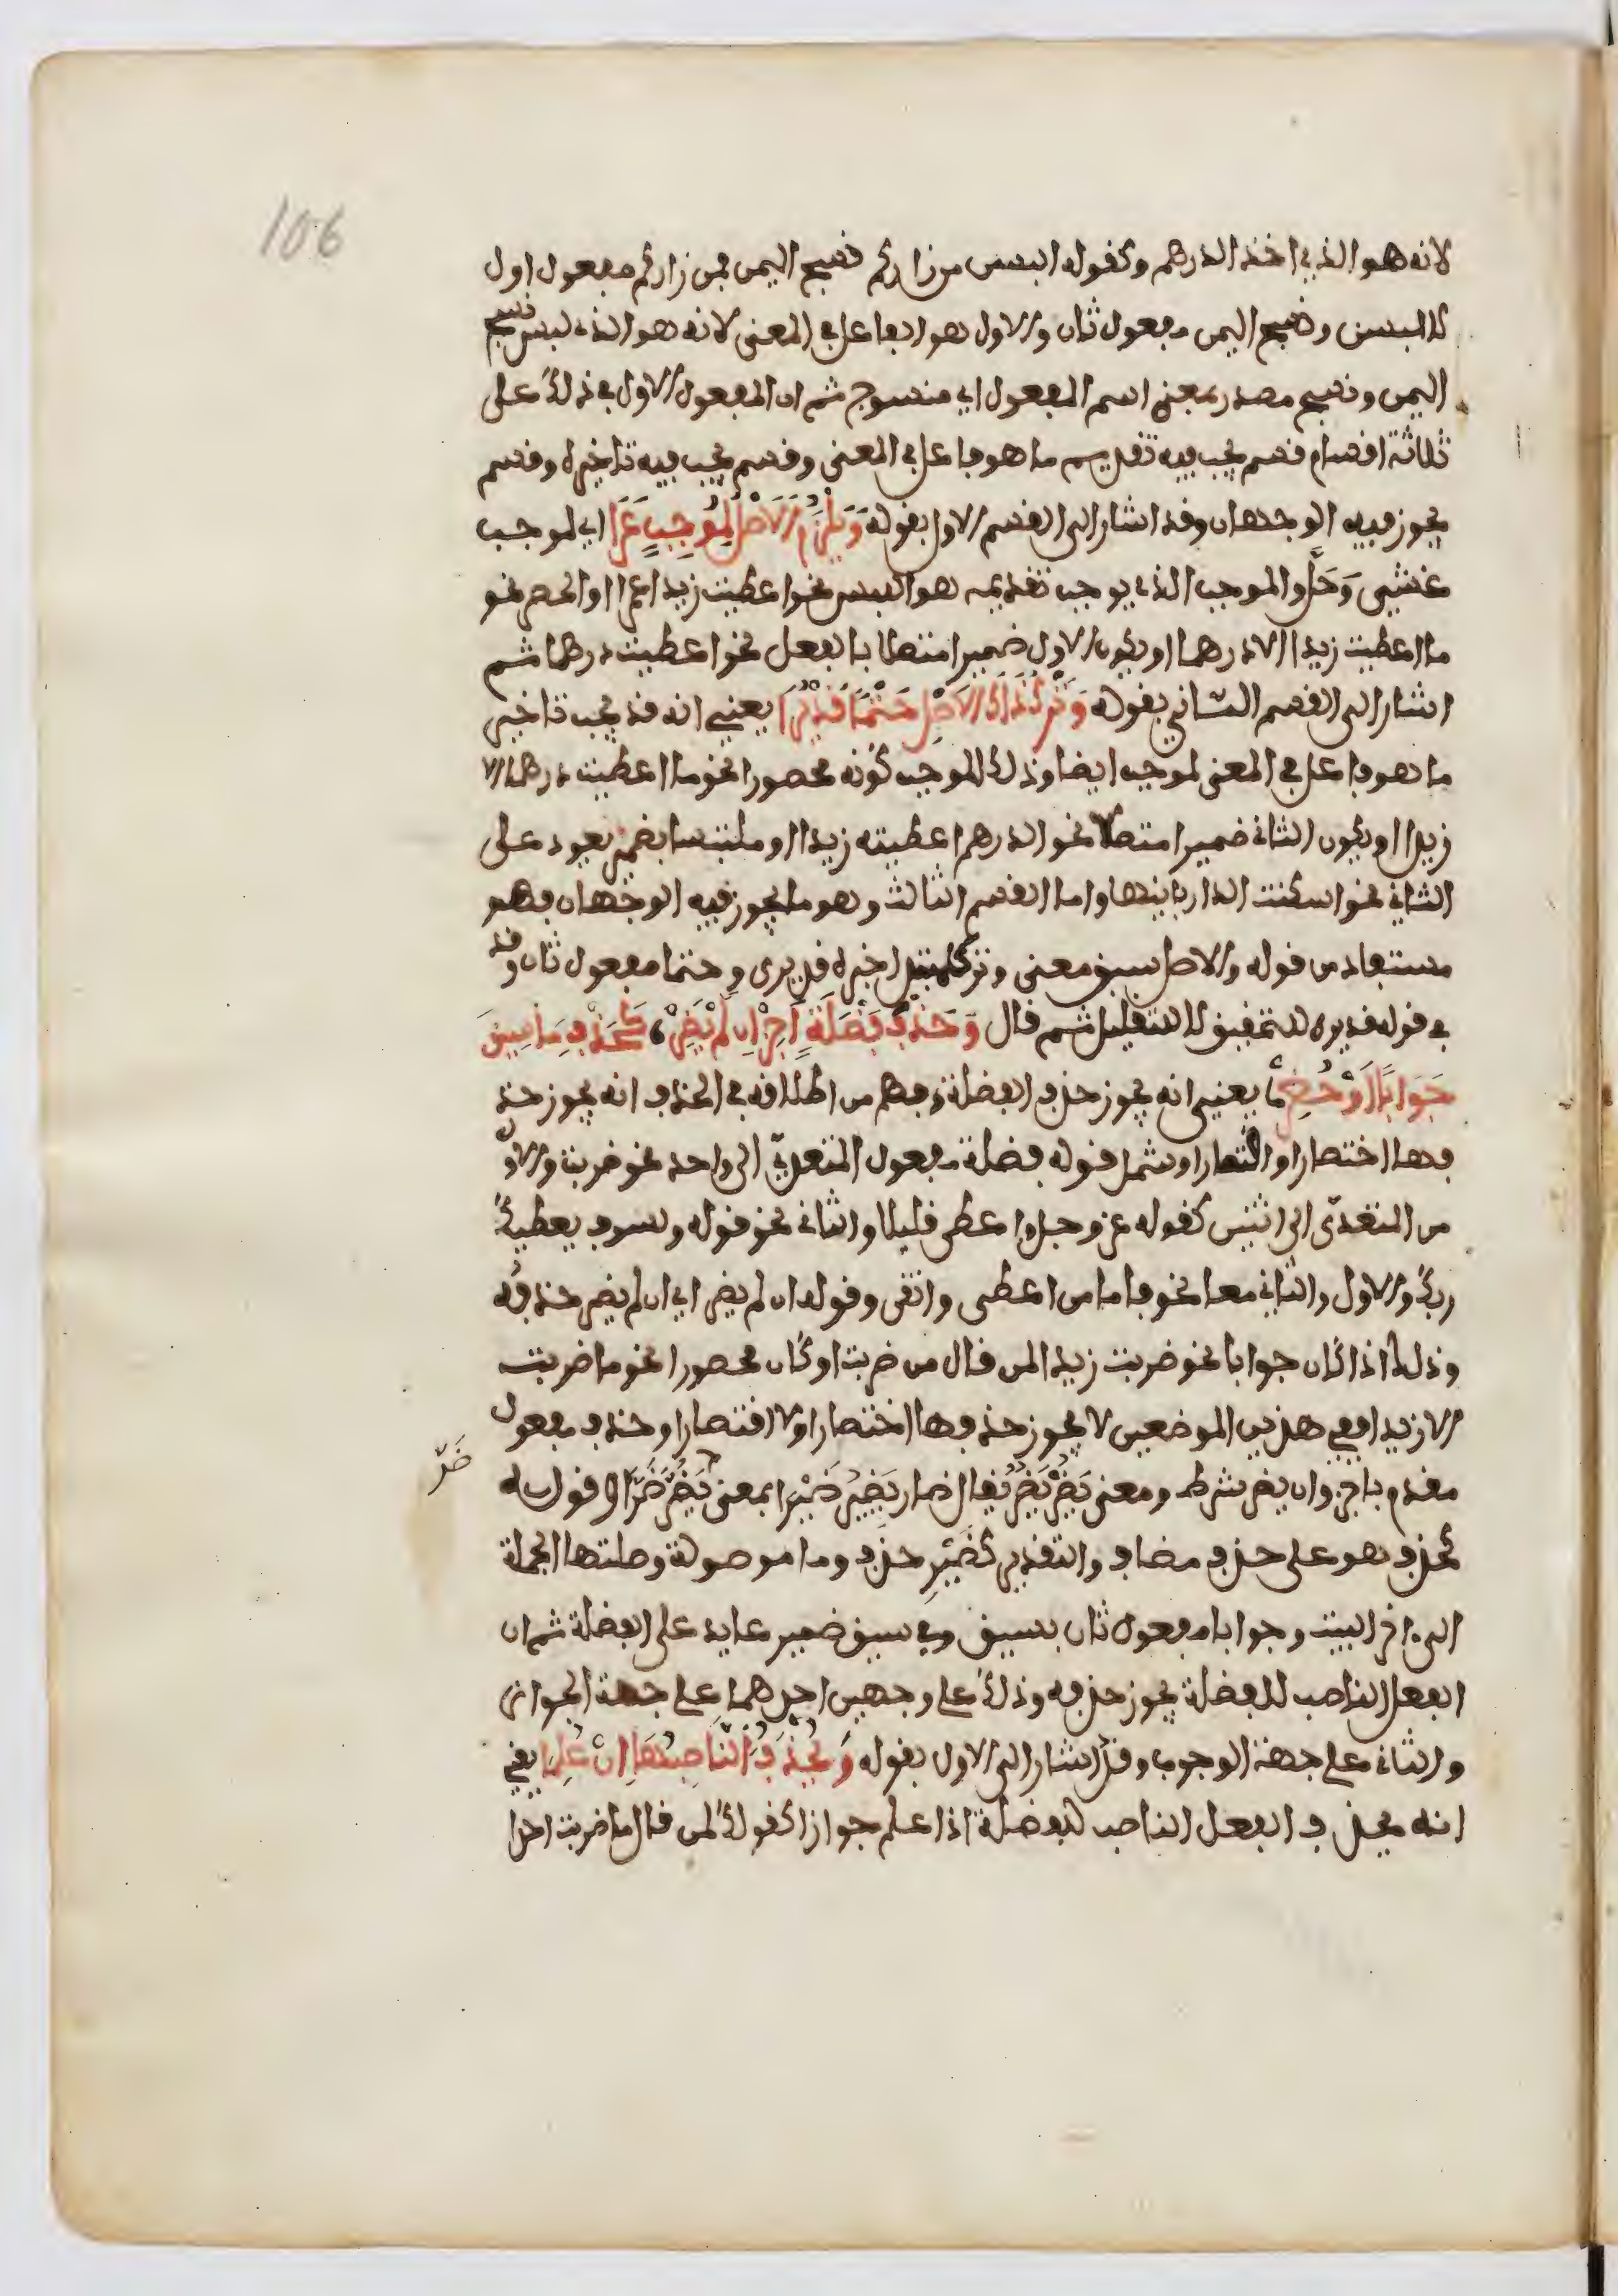 106
لانه هو الذي اخذ الدرهم وكقوله البسن من زاركم نسج اليمن فمن زاركم مفعول اول
لالبسن ونسج اليمن مفعول ثان والاول هو الفاعل في المعنى لانه هو الذي لبس نسج
اليمن ونسيج مصدر بمعنى اسم المفعول اي منسوج ثم ان المفعول الاول في ذلك على
ثلاثة اقسام قسم يجب فيه تقديم ما هو فاعل في المعنى وقسم يجب فيه تاخيره وقسم
يجوز فيه الوجهان وقد اشار الى القسم الاول بقوله وَيَلْزَمُ الاَصْلُ لِمُوجِبٍ عَرَا اي لموجب
غشي وَحَلَّ والموجب الذي يوجب تقديمه هو اللبس نحو اعطيت زيدا عمرا او الحصر نحو
ما اعطيت زيدا الا درهما او يكون الاول ضميرا متصلا بالفعل نحو اعطيتك درهما ثم
اشار الى القسم الثاني بقوله وَتَرْكُ ذَاكَ الاَصْلِ حَتْمًا قَدْ يُرَا يعني انه قد يجب تاخير
ما هو فاعل في المعنى لموجب ايضا وذلك الموجب كونه محصورا نحو ما اعطيت درهما الا
زيدا او يكون الثاني ضميرا متصلا نحو الدرهم اعطيته زيدا او ملتبسا بضمير يعود على
الثاني نحو اسكنت الدار بانيها واما القسم الثالث وهو ما يجوز فيه الوجهان فهو
مستفاد من قوله والاصل سبق معنى وترك مبتدا خبره قد يرى وحتما مفعول ثان وقد
في قوله قد يرى للتحقيق لا للتقليل ثم قال وَحَذْفَ فَضْلَةٍ اَجِزْ اِن لَمْ يَضِرْ كَحَذْفِ مَا سِيقَ
جَوَابًا اَوْ حُصِرْ يعني انه يجوز حذف الفضلة وفهم من اطلاقه في الحذف انه يجوز حذ
فها اختصارا واقتصارا وشمل قوله فضلة مفعول المتعدي الى واحد نحو ضربت والاول
من المتعدى الى اثنين كقوله عز وجل واعطى قليلا والثاني نحو قوله ولسوف يعطيك
ربك والاول والثاني معا نحو فاما من اعطى واتقى وقوله ان لم يضر اي ان لم يضر حذفه
وذلك اذا كان جوابا نحو ضربت زيدا لمن قال من ضربت او كان محصورا نحو ما ضربت
الا زيدا ففي هذين الموضعين لا يجوز حذفها اختصارا ولا اقتصارا وحذف مفعول
مقدم باجز وان يضر شرط ومعنى يَضِرْ يَضُرُّ يقال ضار يَضِيرُ ضَيْرا بمعنى يَضُرُّ ضَرًّا وقوله
ضَرّ
كحذف هو على حذف مضاف والتقدير كضَيْرِ حذف وما موصولة وصلتها الجملة
الى اخر البيت وجوابا مفعول ثان بسيق وفي سيق ضمير عايد على الفضلة ثم ان
الفعل الناصب للفضلة يجوز حذفه وذلك على وجهين احدهما على جهة الجواز
والثاني على جهة الوجوب وقد اشار الى الاول بقوله وَيُحْذَفُ النَّاصِبُهَا اِنْ عُلِمَا يعني
انه يحذف الفعل الناصب للفضلة اذا علم جوازا كقولك لمن قال ما ضربت احدا